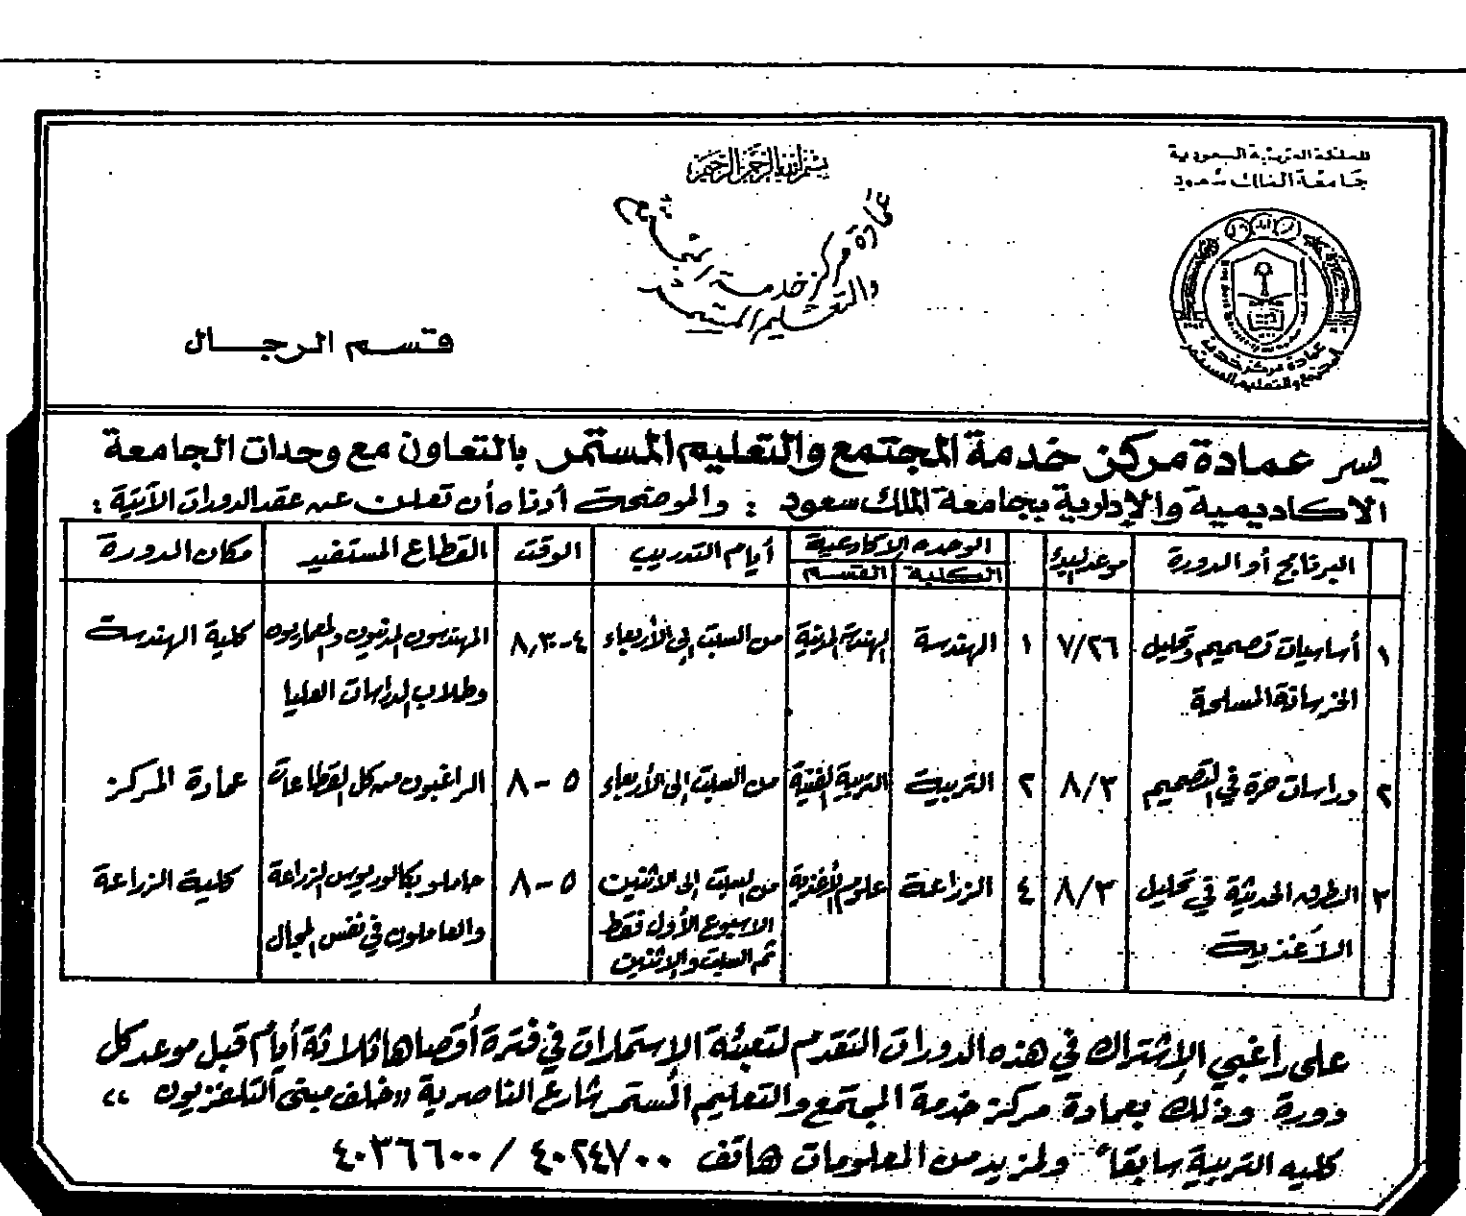 المملكة العربية السعودية
جامعة الملك سعود
بسم الله الرحمن الرحيم
عمادة مركز خدمة المجتمع
والتعليم المستمر
عمادة مركز خدمة
المجتمع والتعليم المستمر
قسم الرجال
يسر عمادة مركز خدمة المجتمع والتعليم المستمر بالتعاون مع وحدات الجامعة
الاكاديمية والإدارية بجامعة الملك سعود : والموضحة أدناه أن تعلن عن عقد الدورات الآتية :
البرنامج أو الدورة موعد البدء الوحده الاكاديمية أيام التدريب الوقت القطاع المستفيد مكان الدورة
الكلية القسم
١ أساسيات تصميم وتحليل ٧/٢٦ ١ الهندسة الهندسة المدنية من السبت إلى الأربعاء ٤-٨,٣٠ المهندسون المدنيون والمعماريون كلية الهندسة
الخرسانة المسلحة وطلاب الدراسات العليا
٢ دراسات حرة في التصميم ٨/٣ ٢ التربية التربية الفنية من السبت إلى الأربعاء ٥ - ٨ الراغبون من كل القطاعات عمادة المركز
٣ الطرق الحديثة في تحليل ٨/٣ ٤ الزراعة علوم الأغذية من السبت إلى الاثنين ٥ - ٨ حاملو بكالوريوس الزراعة كلية الزراعة
الأغذية الاسبوع الأول فقط والعاملون في نفس المجال
ثم السبت والاثنين
على راغبي الإشتراك في هذه الدورات التقدم لتعبئة الإستمارات في فترة أقصاها ثلاثة أيام قبل موعد كل
دورة وذلك بعمادة مركز خدمة المجتمع والتعليم المستمر شارع الناصرية ،،خلف مبنى التلفزيون ،،
كلية التربية سابقاً ولمزيد من المعلومات هاتف ٤٠٢٤٧٠٠ / ٤٠٣٦٦٠٠